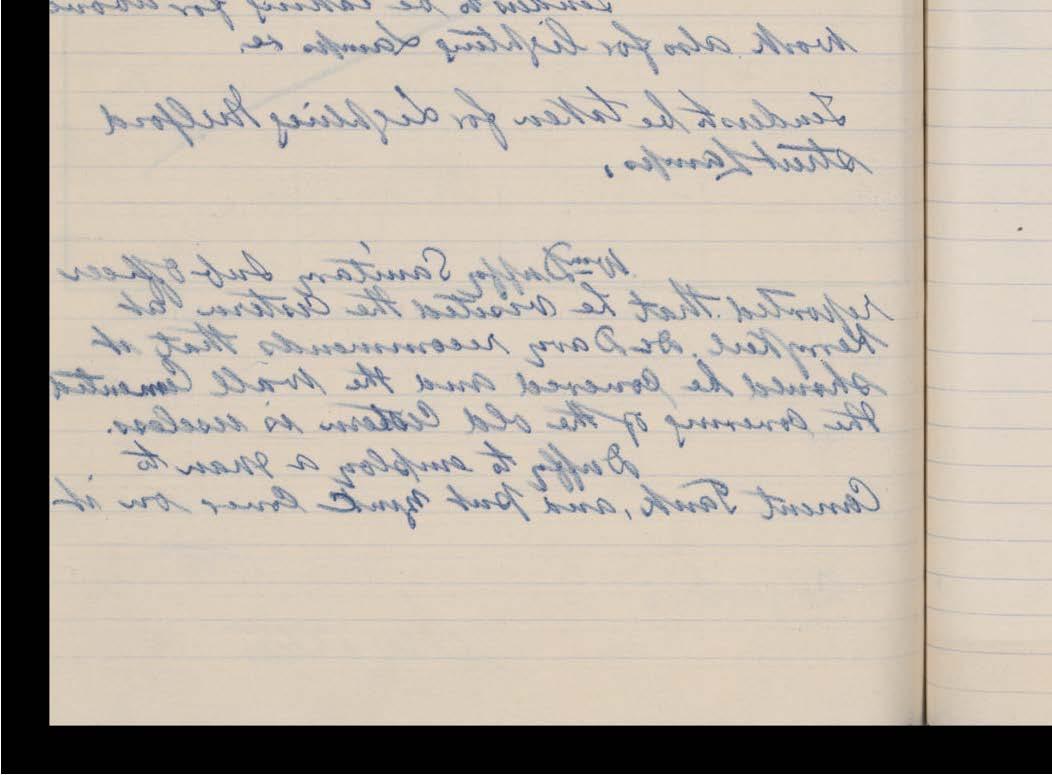 Tenders to be taking for above
Work also for lighting Lamps &c.
Tenders to be taken for Lighting Milford
Street Lamps.
Wm Duffy Sanitary Sub Officer
reported that he visited the Cistern at
Dr recommends that it
should be Covered and the Wall Cemented
the Covering of the old Cistern is useless.
Duffy to employ a man to
Cement Tank, and put Zink Cover on it